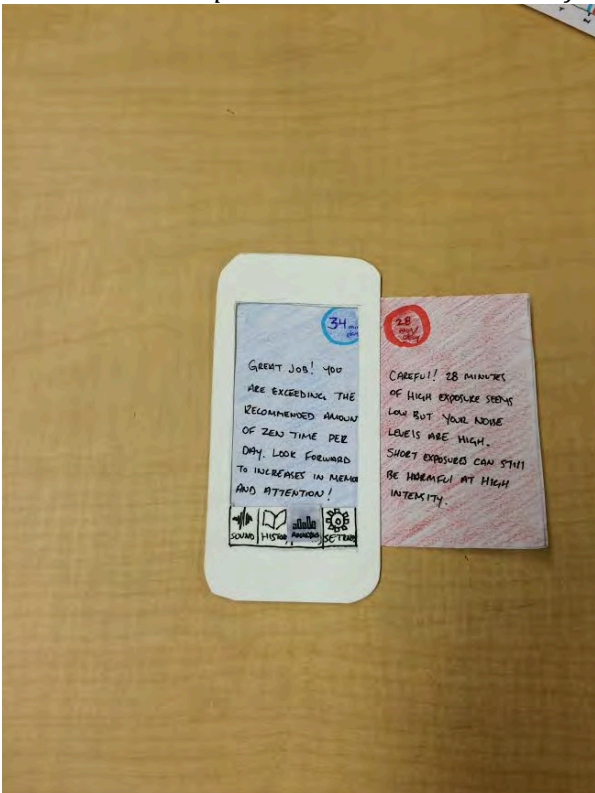 34 min/
day
GREAT JOB! YOU
ARE EXCEEDING THE
RECOMMENDED AMOUN
OF ZEN TIME PER
DAY. LOOK FORWARD
TO INCREASES IN MEMO
AND ATTENTION!
SOUND HISTORY ANALYSIS SETTINGS
28
min/
day
CAREFUL! 28 MINUTES
OF HIGH EXPOSURE SEEMS
LOW BUT YOUR NOISE
LEVELS ARE HIGH.
SHORT EXPOSURES CAN STILL
BE HARMFUL AT HIGH
INTENSITY.